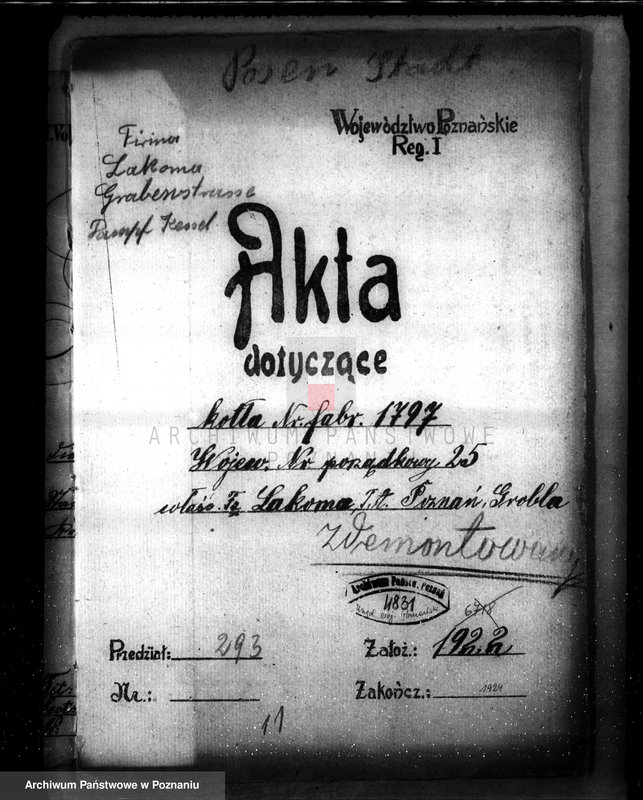 Posen Stadt
Województwo Poznańskie
Reg. I
Firma
Lakoma
Grabenstrasse
Dampf Kessel
Akta
dotyczące
kotła Nr. fabr. 1797
ARCHIWUM PAŃSTWOWE
POZNAŃ
Wojew. Nr porządkowy 25
właśc. Fa Lakoma, T.A. Poznań, Grobla
zdemontowany
Archiwum Państw. Poznań
4831
Przedział: 293
Założ.: 1922
Nr.:
Zakończ.: 1924
11
Archiwum Państwowe w Poznaniu